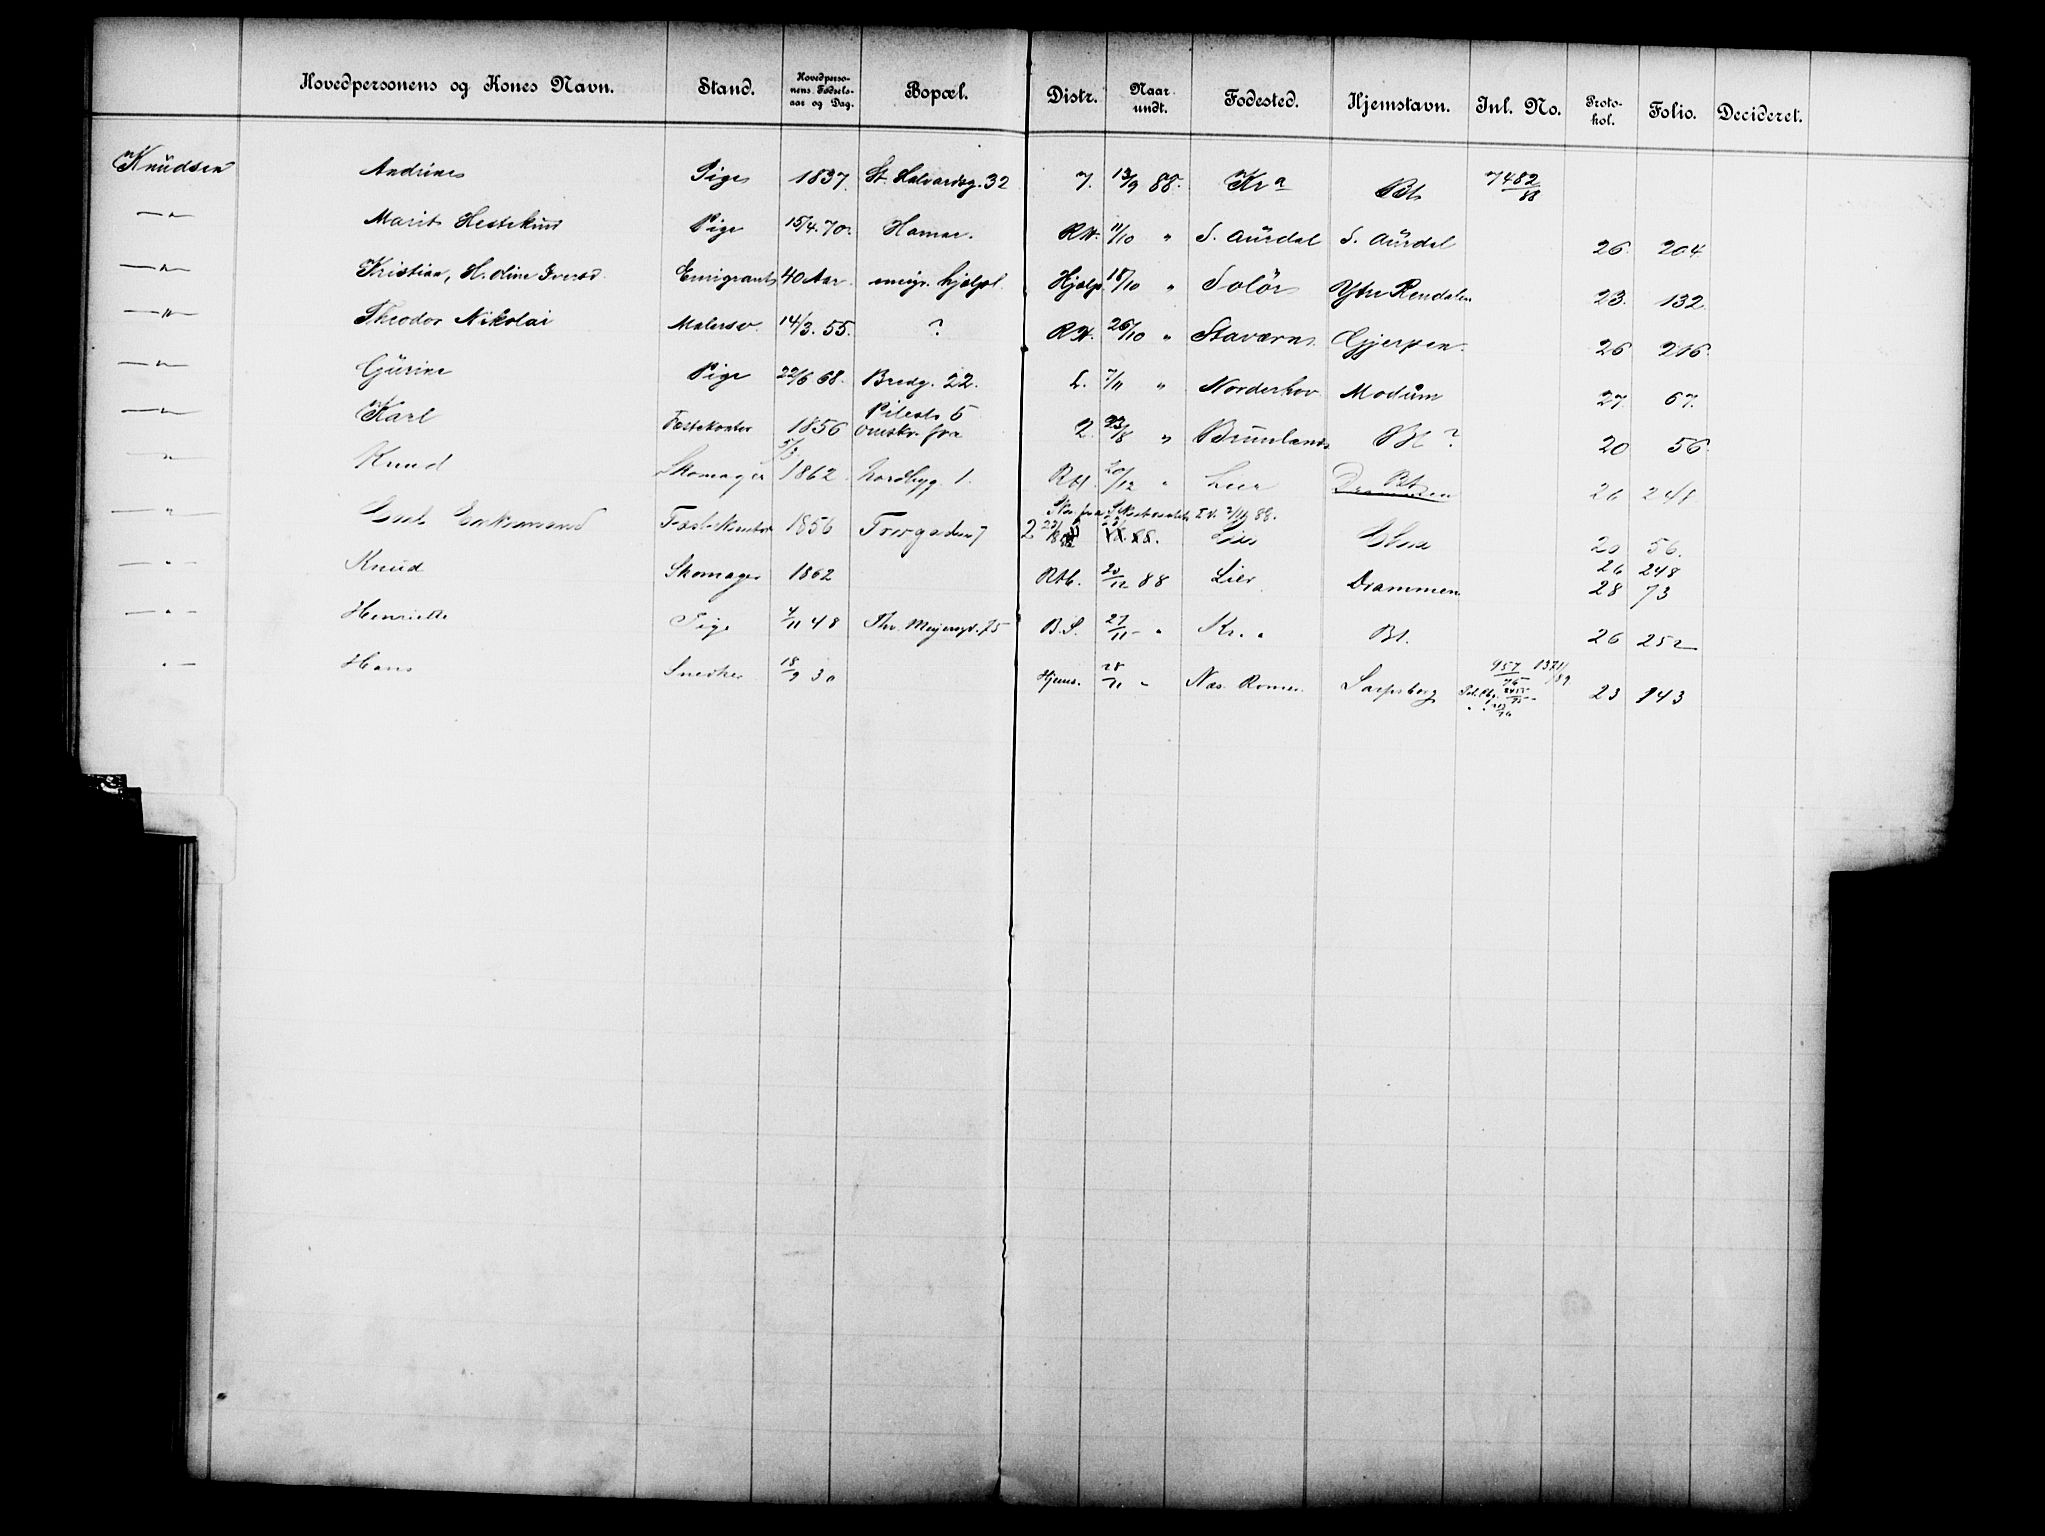 Hovedpersonens og Kones Navn. Stand. Hovedpersonens Fødselsaar og Dag. Bopæl. Distr. Naar undt. Fodested. Hjemstavn. Inl. No. Protokol. Folio. Decideret.
Knudsen Andrine Pige 1837. St. Halvardsg. 32 7. 13/9 88. Kr a Bt 7482/88
—"— Marit Pige 15/4.70. Hamar. RH. 11/10 " S. Aürdal S. Aürdal 26. 204
—"— Kristian, H. dine Iversd. Emigrant 40 Aar. emigr. hjælpl. Hjælp. 18/10 " Solör Ytre Rendalen 23. 132
—"— Theodor Nikolai Malersv. 14/3. 55. ? RH. 26/10 " Staværn. Gjerpen. 26 216.
—"— Gürine Pige 22/6 68. Bredg. 22. L. 7/11 " Norderhov Modüm 27 67.
—"— Karl Fæstekontor 1856 Pilest. 5 omskr. fra 2. 23/8 " Brunlanes Bt ? 20 56.
" Knud Skomager 5/3 1862. Nordbyg. 1. RH. 20/12 " Lier Drammen Bt 26 248
—"— Fæstekontor 1856 Torvgaden 7 2 88. 20 56.
—"— Knud Skomager 1862 RH. 20/12 88 Lier Drammen 26 248 28 73
—"— Henriette Pige 4/11 48 Thv. Meyersgd. 75 B.S. 27/11 " Kr. a Bt. 26 252
"— Hans Snedker 18/9 30 Hjems. 28/11 " Næs. Romer. Sarpsborg 957 1371/89 23 143